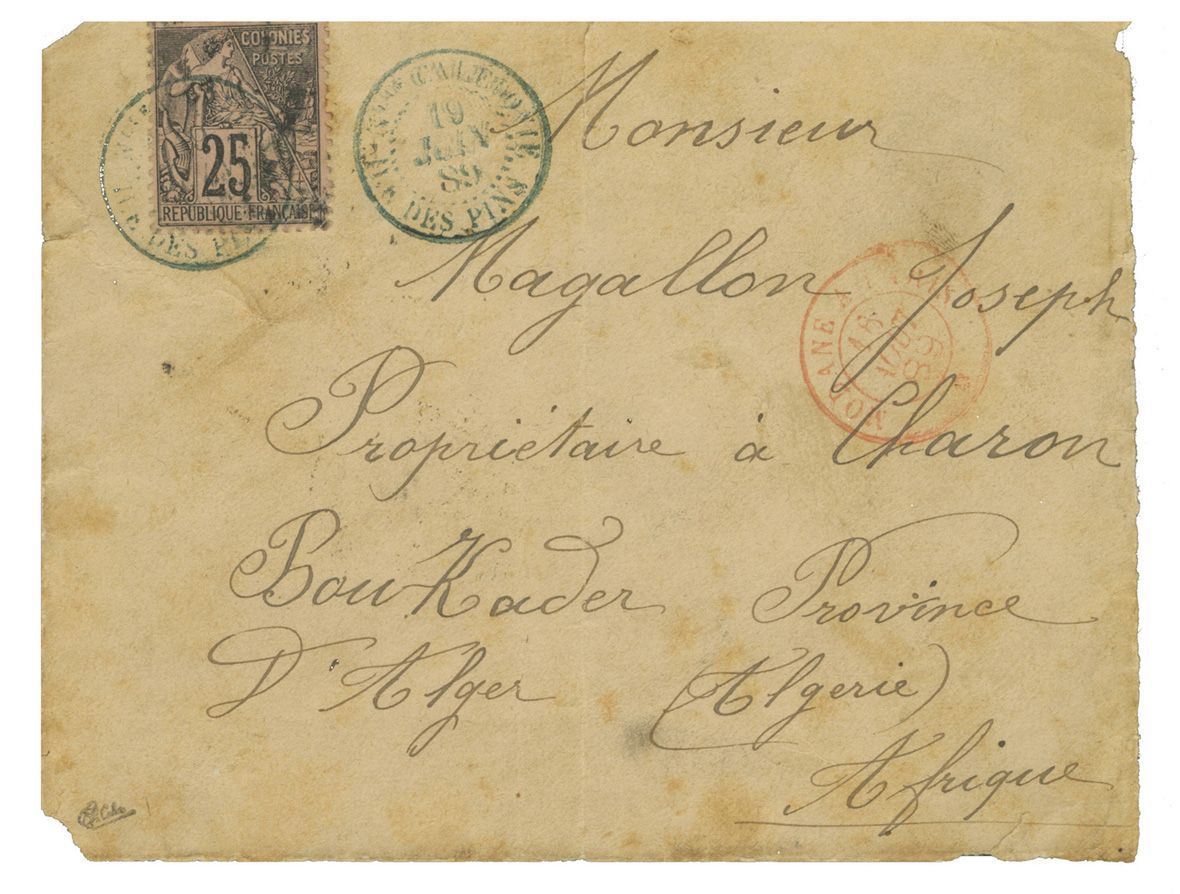 COLONIES
POSTES
25
RÉPUBLIQUE FRANÇAISE
ILE DES PINS
Nlle CALEDONIE
19
JUIN
89
ILE DES PINS
Monsieur
Magallon Joseph
18
89
Propriétaire à Charon
Bou Kader Province
D'Alger (Algerie)
Afrique